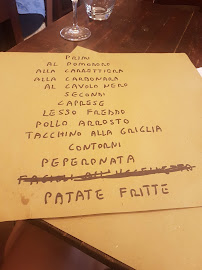 PRIMI
AL POMODORO
ALLA CARRETTIERA
ALLA CARBONARA
AL CAVOLO NERO
SECONDI
CAPRESE
LESSO FREDDO
POLLO ARROSTO
TACCHINO ALLA GRIGLIA
CONTORNI
PEPERONATA
FAGIOLI ALL'UCCELLETTO
PATATE FRITTE